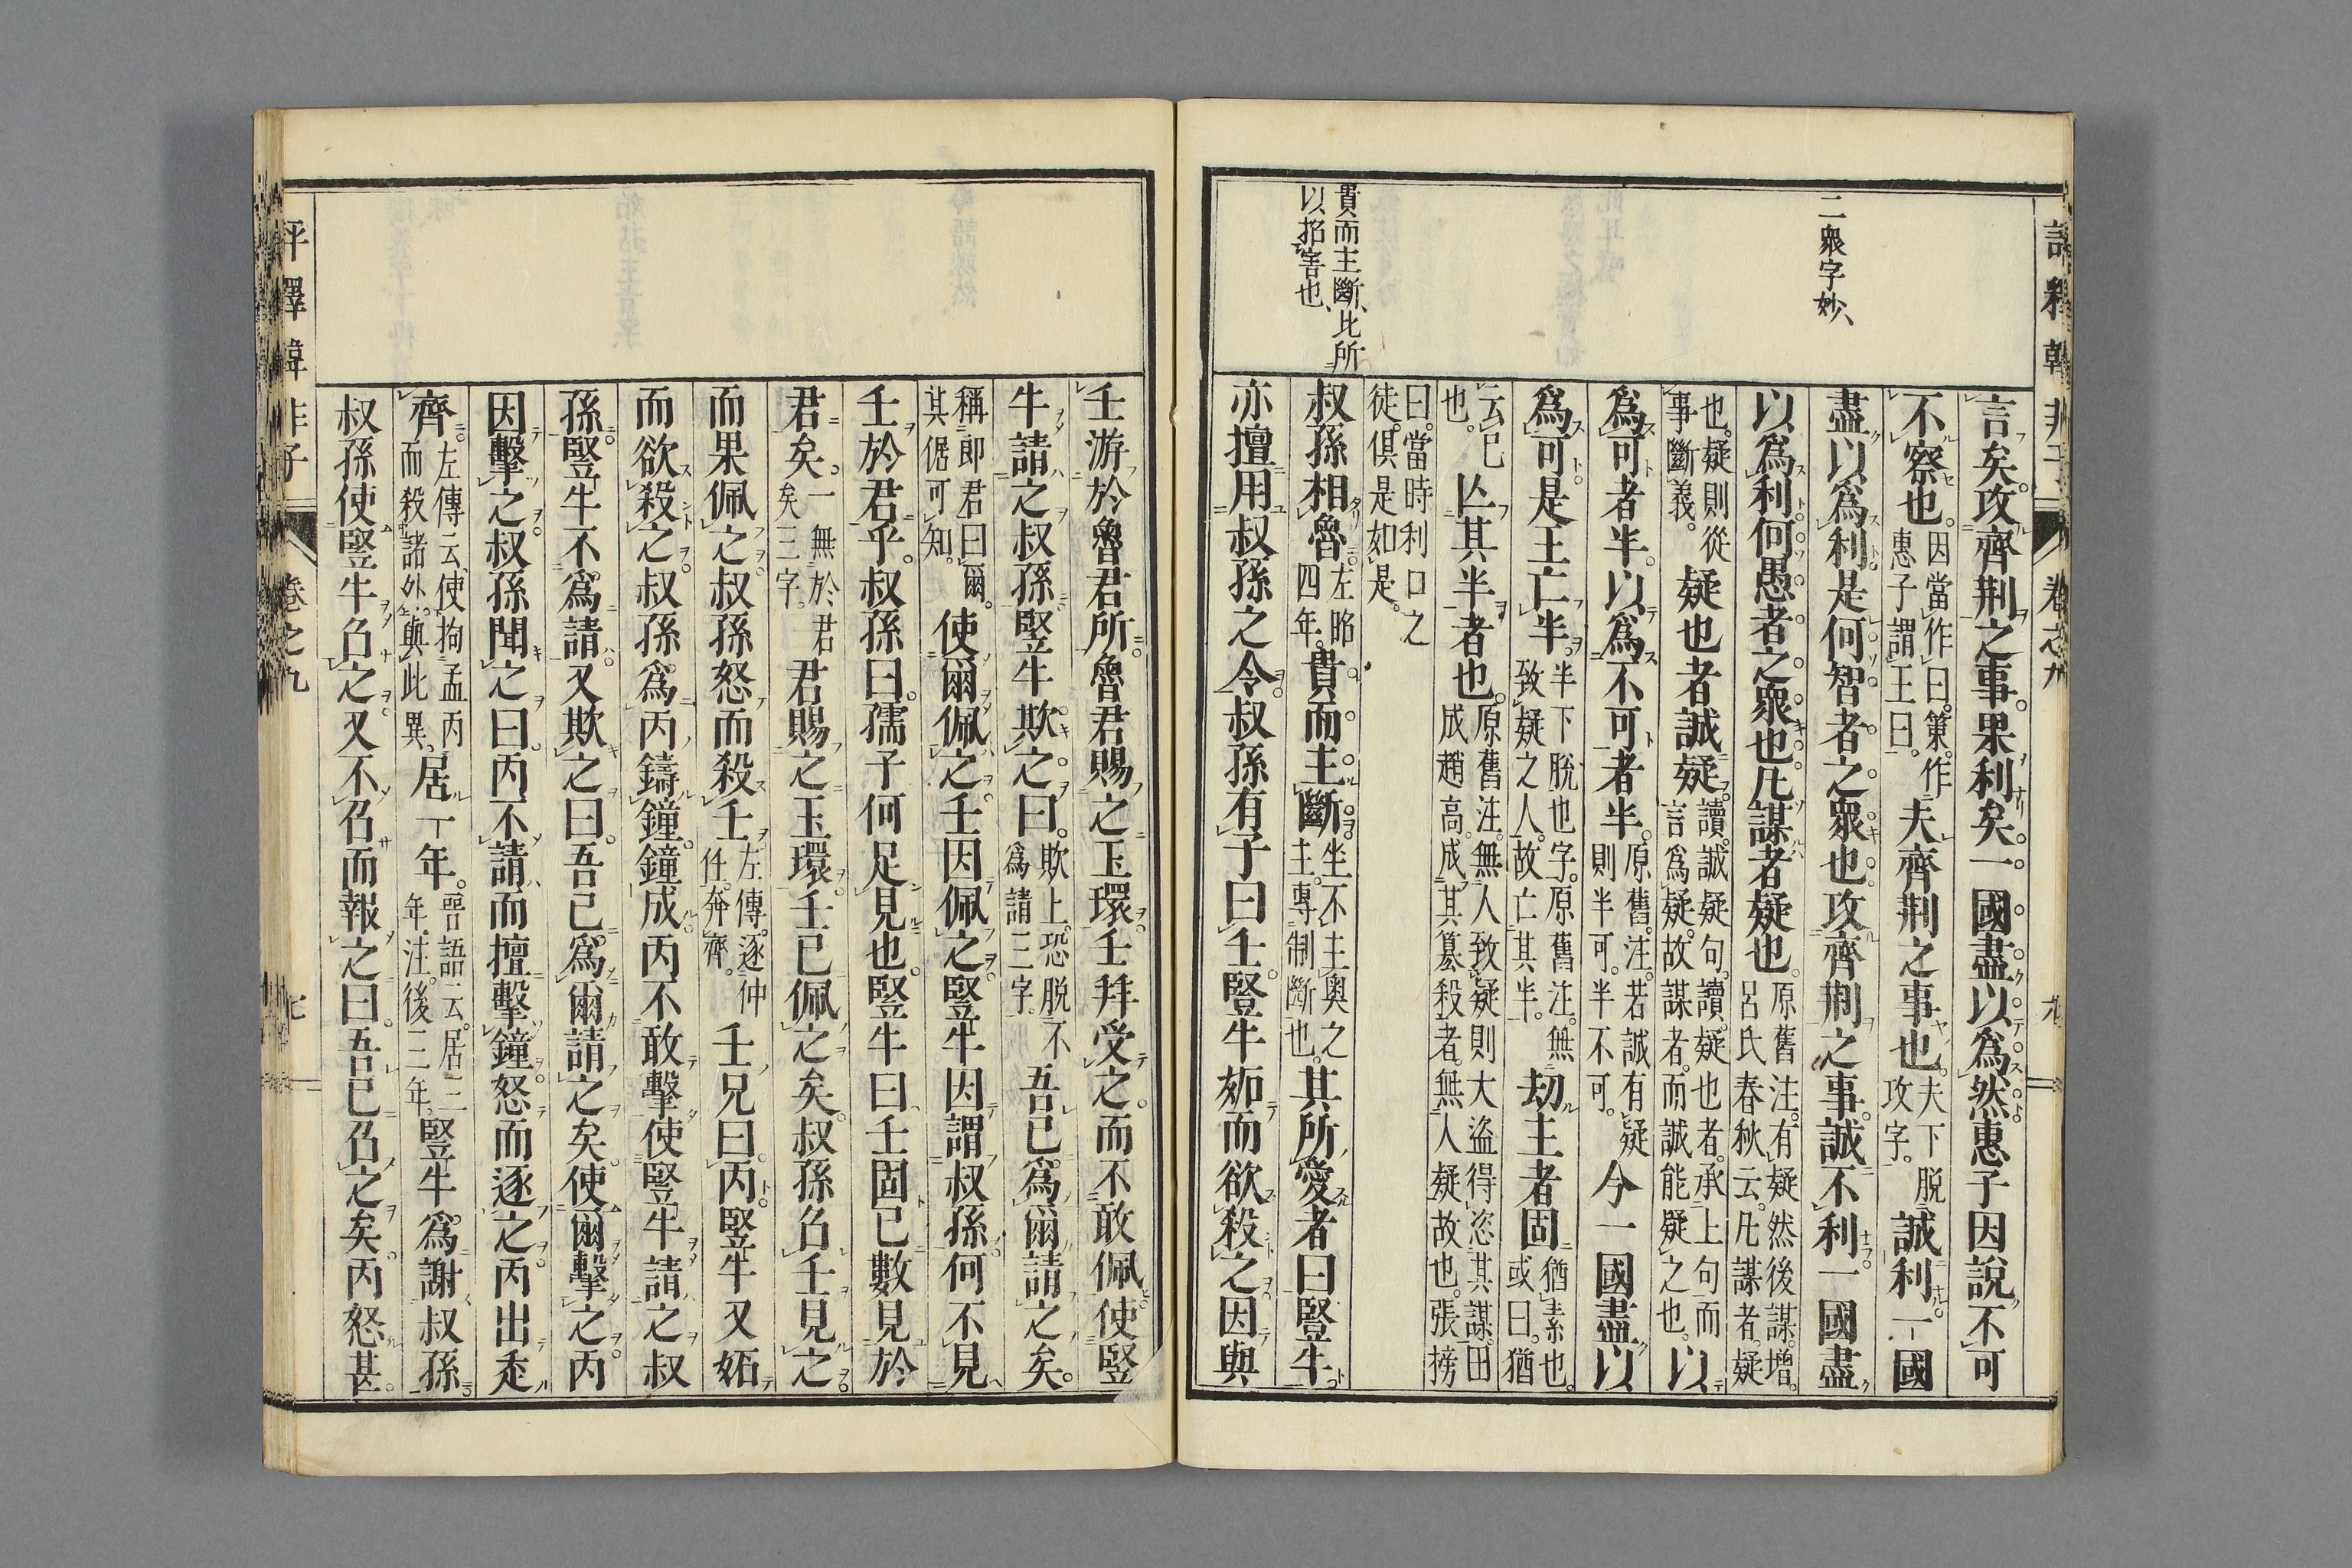 二衆字妙、
貴而主斷、比所
以招害也、
言矣。攻齊荆之事。果利矣。一國盡以爲然。惠子因說。不可
不察也。因當作曰。策。作惠子謂王曰。夫齊荆之事也。夫下脫攻字。誠利。一國
盡以爲利。是何智者之衆也。攻齊荆之事。誠不利。一國盡
以爲利。何愚者之衆也。凡謀者疑也。原舊注。有疑然後謀。增。呂氏春秋云。凡謀者。疑
也。疑則從事斷義。疑也者誠疑。讀。誠疑句。讀。疑也者。承上句而言爲疑。故謀者。而誠能疑之也。以
爲可者半。以爲不可者半。原舊。注。若誠有疑則半可。半不可。今一國盡以
爲可。是王亡半。半下脫也字。原舊注。無致疑之人。故亡其半。劫主者固猶素也。或曰。猶
云已也。亾其半者也。原舊注。無人致疑則大盜得恣其謀。田成趙高。成其簒殺者。無人疑故也。張榜
曰。當時利口之徒。俱是如是。
叔孫相魯。左昭四年。貴而主斷。坐不主奧之主。專制斷也。其所愛者曰豎牛
亦擅用叔孫之令。叔孫有子曰壬。豎牛妬而欲殺之。因與
壬游於魯君所。魯君賜之玉環。壬拜受之。而不敢佩。使豎
牛請之叔孫。豎牛欺之曰。欺上。恐脫不爲請三字。吾已爲爾請之矣。
稱即君曰爾。其倨可知。使爾佩之。壬因佩之。豎牛因謂叔孫。何不見
壬於君乎。叔孫曰。孺子何足見也。豎牛曰壬固已數見於
君矣。一無於君矣三字。君賜之玉環。壬已佩之矣。叔孫名壬見之
而果佩之。叔孫怒而殺壬。左傳。逐仲任。奔齊。壬兄曰丙。豎牛又妬
而欲殺之。叔孫爲丙鑄鐘。鐘成。丙不敢擊。使豎牛請之叔
孫。豎牛不爲請。又欺之曰。吾已爲爾請之矣。使爾擊之。丙
因擊之。叔孫聞之曰。丙不請而擅擊鐘。怒而逐之。丙出走
齊。左傳云。使拘孟丙而殺諸外。與此異。居一年。晋語云。居二年。注。後三年。豎牛爲謝叔孫
叔孫使豎牛名之又不名而報之曰。吾已名之矣。丙怒甚。
評釋韓非子
卷之九
七